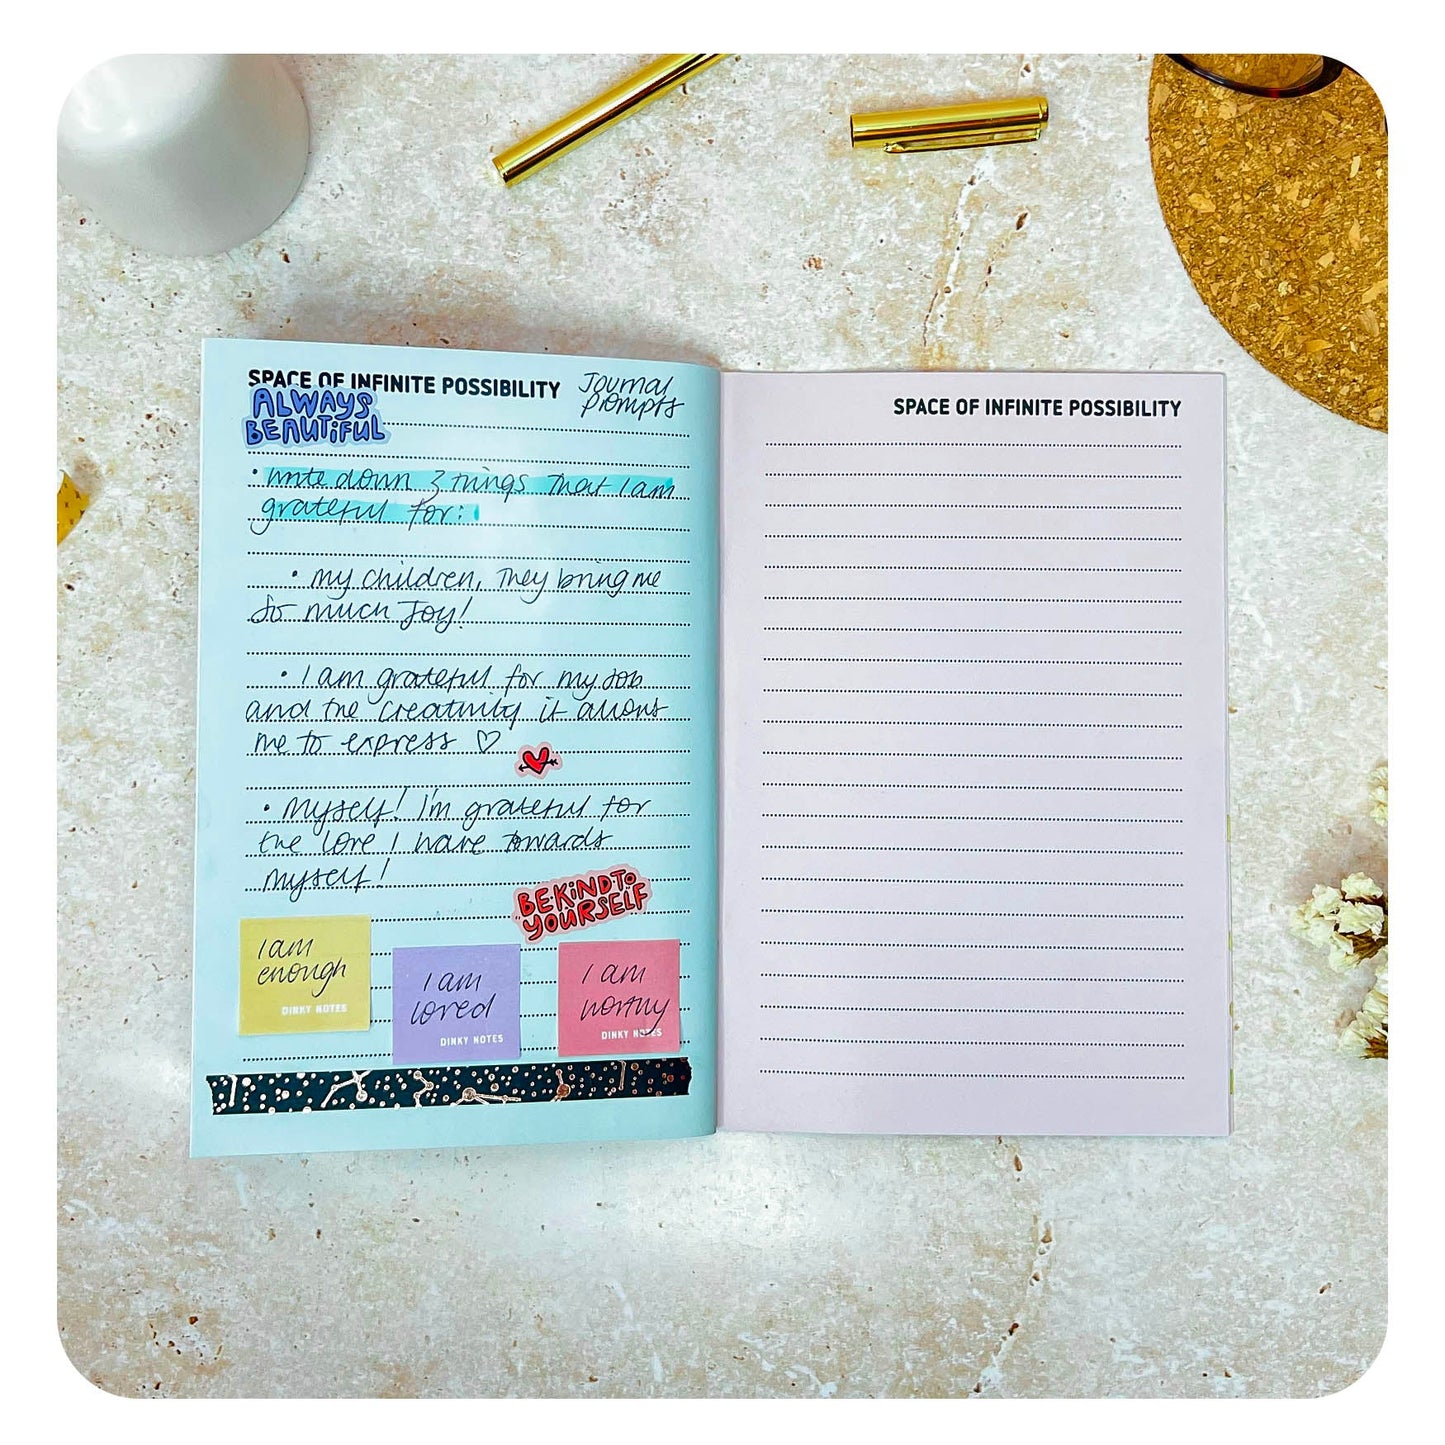 SPACE OF INFINITE POSSIBILITY
Journal
prompts
ALWAYS
BEAUTIFUL
• Write down 3 things that I am
grateful for:
• my children, they bring me
so much Joy!
• I am grateful for my job
and the creativity it allows
me to express ♡
• Myself! I'm grateful for
the love I have towards
myself!
BE KIND TO
YOURSELF
I am
enough
DINKY NOTES
I am
loved
DINKY NOTES
I am
worthy
DINKY NOTES
SPACE OF INFINITE POSSIBILITY